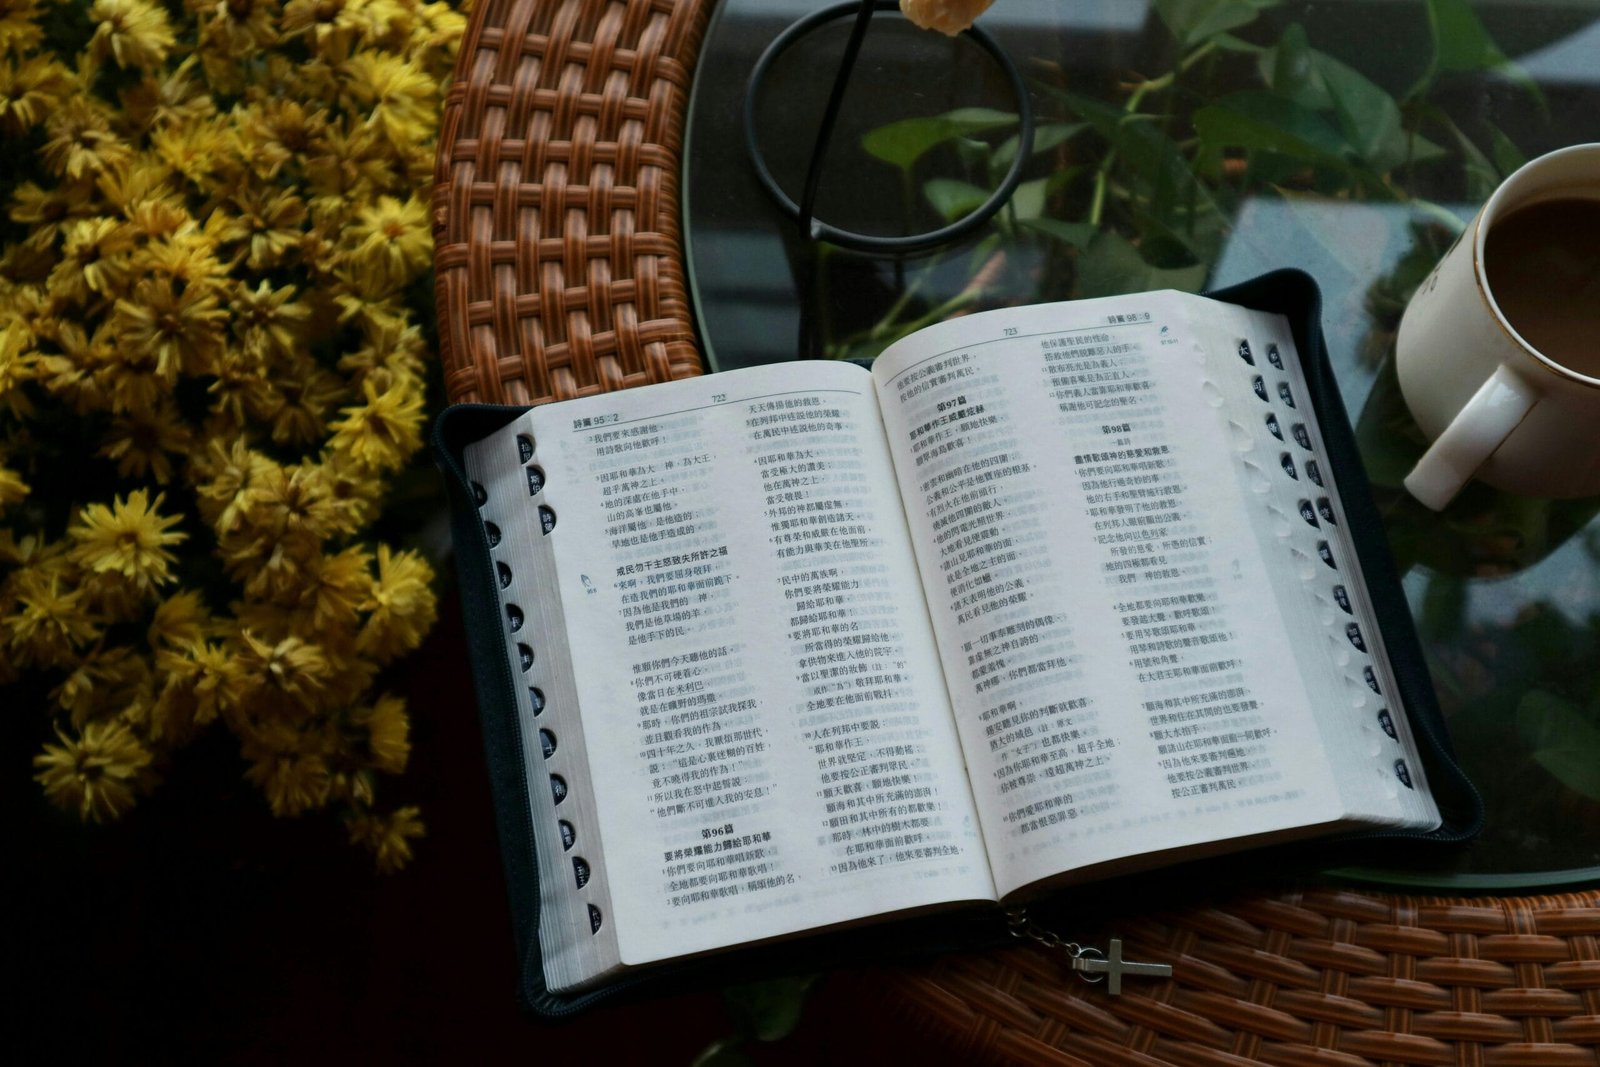 詩篇 95：2
722
2我們要來感謝他，
用詩歌向他歡呼！
3因耶和華為大　神，為大王，
超乎萬神之上。
4地的深處在他手中，
山的高峯也屬他。
5海洋屬他，是他造的；
旱地也是他手造成的。
戒民勿干主怒致失所許之福
6來啊，我們要屈身敬拜，
在造我們的耶和華面前跪下。
7因為他是我們的　神；
我們是他草場的羊，
是他手下的民。
惟願你們今天聽他的話，
8你們不可硬着心，
像當日在米利巴，
就是在曠野的瑪撒。
9那時，你們的祖宗試我探我，
並且觀看我的作為。
10四十年之久，我厭煩那世代，
說：“這是心裏迷糊的百姓，
竟不曉得我的作為！”
11所以我在怒中起誓說：
“他們斷不可進入我的安息！”
第96篇
要將榮耀能力歸給耶和華
1你們要向耶和華唱新歌，
全地都要向耶和華歌唱！
2要向耶和華歌唱，稱頌他的名，
天天傳揚他的救恩，
3在列邦中述說他的榮耀，
在萬民中述說他的奇事。
4因耶和華為大，
當受極大的讚美；
他在萬神之上，
當受敬畏！
5外邦的神都屬虛無，
惟獨耶和華創造諸天。
6有尊榮和威嚴在他面前，
有能力與華美在他聖所。
7民中的萬族啊，
你們要將榮耀能力
歸給耶和華，
都歸給耶和華！
8要將耶和華的名
所當得的榮耀歸給他，
拿供物來進入他的院宇。
9當以聖潔的妝飾（註：“的”
或作“為”）敬拜耶和華，
全地要在他面前戰抖。
10人在列邦中要說：
“耶和華作王，
世界就堅定，不得動搖；
他要按公正審判眾民。”
11願天歡喜，願地快樂！
願海和其中所充滿的澎湃！
12願田和其中所有的都歡樂！
那時，林中的樹木都要
在耶和華面前歡呼。
13因為他來了，他來要審判全地。
723
詩篇 98：9
他要按公義審判世界，
按他的信實審判萬民。
第97篇
耶和華作王威嚴炫赫
1耶和華作王，願地快樂，
願眾海島歡喜！
2密雲和幽暗在他的四圍；
公義和公平是他寶座的根基。
3有烈火在他前頭行，
燒滅他四圍的敵人。
4他的閃電光照世界，
大地看見便震動。
5諸山見耶和華的面，
就是全地之主的面，
便消化如蠟。
6諸天表明他的公義，
萬民看見他的榮耀。
7願一切事奉雕刻的偶像、
靠虛無之神自誇的，
都蒙羞愧。
萬神哪，你們都當拜他。
8耶和華啊，
錫安聽見你的判斷就歡喜，
猶大的城邑（註：原文
作“女子”）也都快樂。
9因為你耶和華至高，超乎全地；
你被尊崇，遠超萬神之上。
10你們愛耶和華的
都當恨惡罪惡。
他保護聖民的性命，
搭救他們脫離惡人的手。
11散布亮光是為義人；
預備喜樂是為正直人。
12你們義人當靠耶和華歡喜，
稱謝他可記念的聖名。
第98篇
一篇詩
盡情歌頌神的慈愛和救恩
1你們要向耶和華唱新歌！
因為他行過奇妙的事；
他的右手和聖臂施行救恩。
2耶和華發明了他的救恩，
在列邦人眼前顯出公義；
3記念他向以色列家
所發的慈愛，所憑的信實；
地的四極都看見
我們　神的救恩。
4全地都要向耶和華歡樂；
要發起大聲，歡呼歌頌！
5要用琴歌頌耶和華，
用琴和詩歌的聲音歌頌他！
6用號和角聲，
在大君王耶和華面前歡呼！
7願海和其中所充滿的澎湃，
世界和住在其間的也要發聲。
8願大水拍手；
願諸山在耶和華面前一同歡呼。
9因為他來要審判遍地。
他要按公義審判世界，
按公正審判萬民。